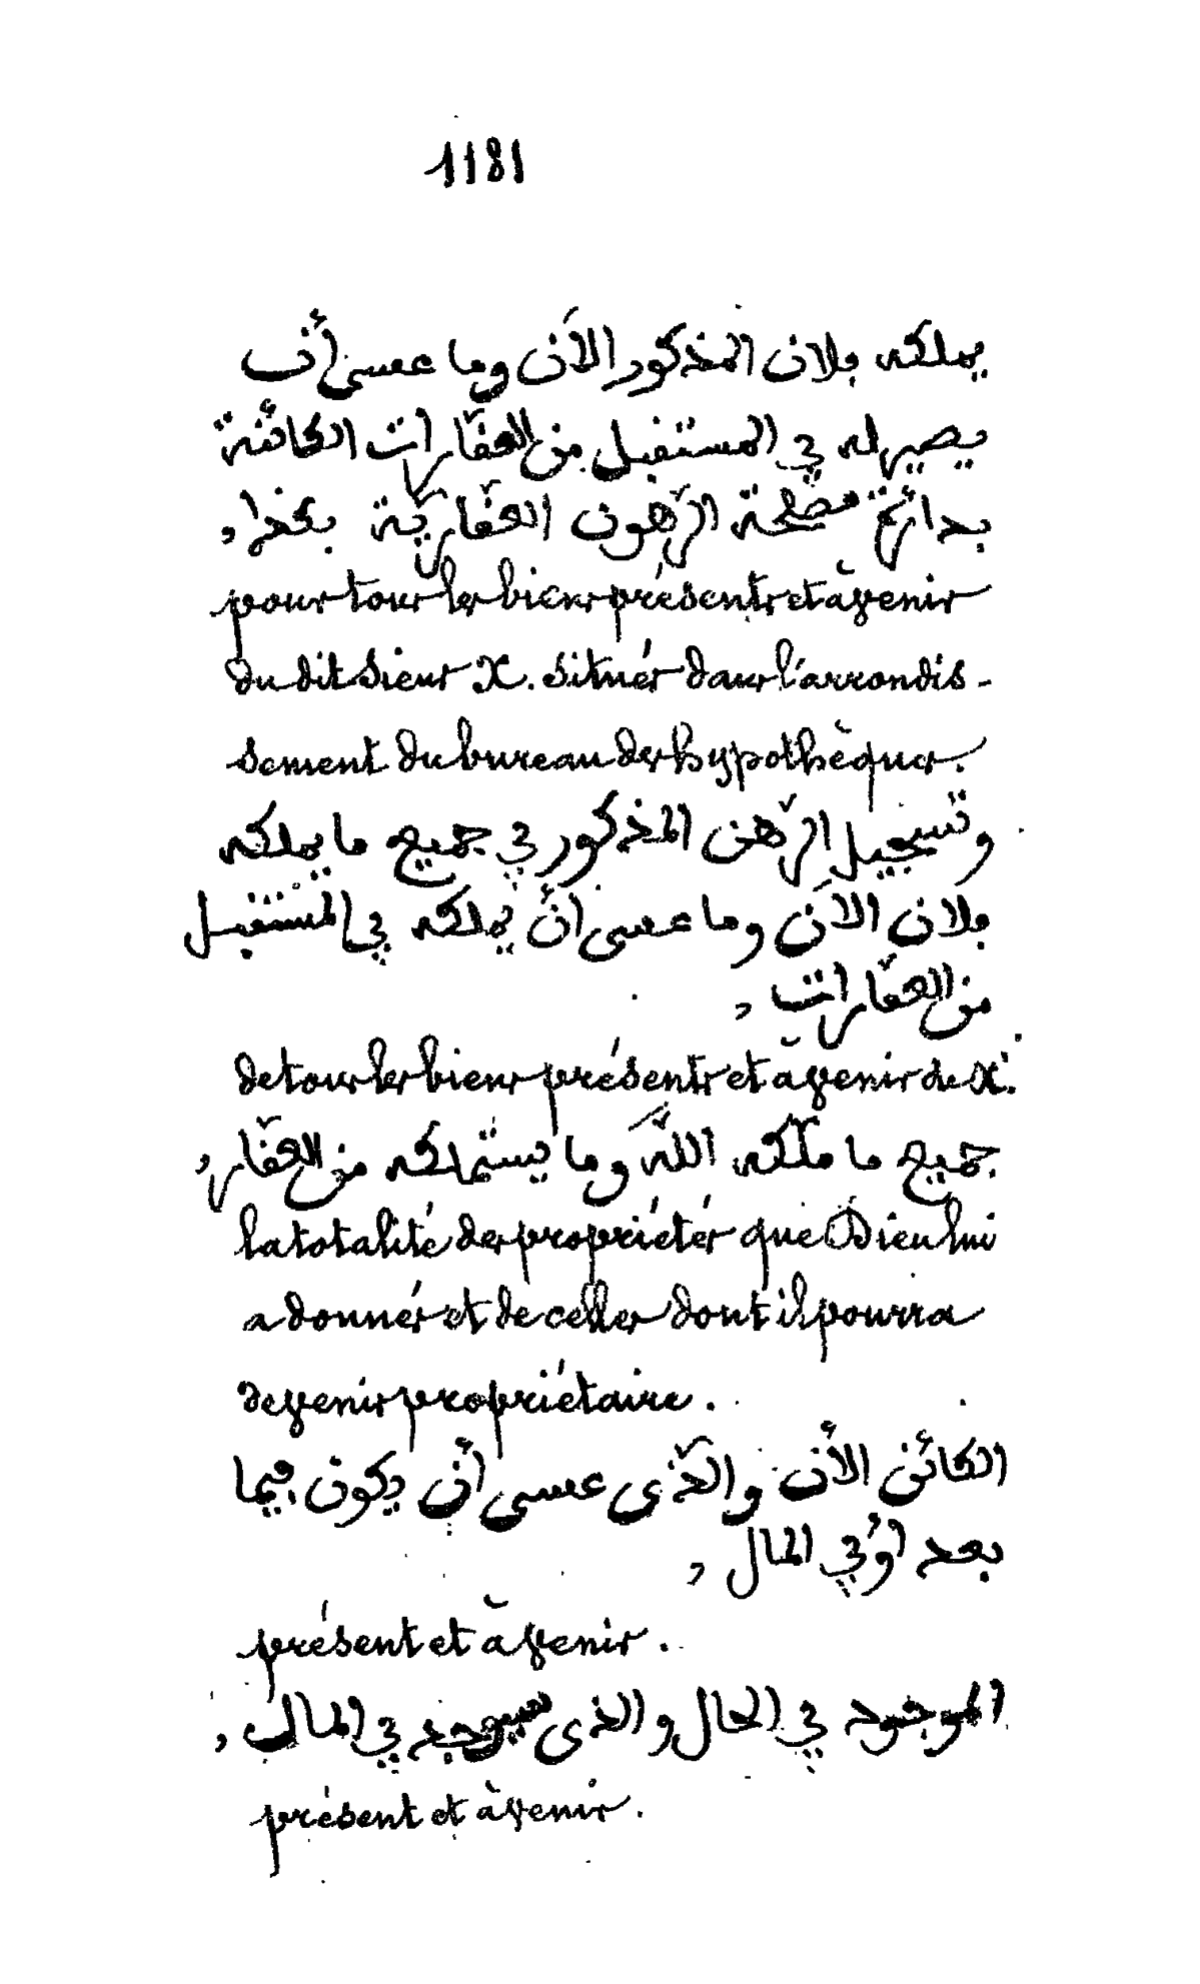 1181
يملكه فلان المذكور الآن وما عسى أن
يصير له في المستقبل من العقارات الكائنة
بدائرة مصلحة الرهون العقاريّة بكذا,
pour tous les biens présents et à venir
du dit sieur X. situés dans l'arrondis-
sement du bureau des hypothèques.
وتسجيل الرّهن المذكور في جميع ما يملكه
فلان الآن وما عسى أن يملكه في المستقبل
من العقارات,
de tous les biens présents et à venir de X.
جميع ما ملّكه اللّه وما يستملكه من العقار,
la totalité des propriétés que Dieu lui
a donnés et de celles dont il pourra
devenir propriétaire.
الكائن الأن والّذى عسى أن يكون فيما
بعد أو في المال,
présent et à venir.
الموجود في الحال والذى سيوجد في المال,
présent et à venir.